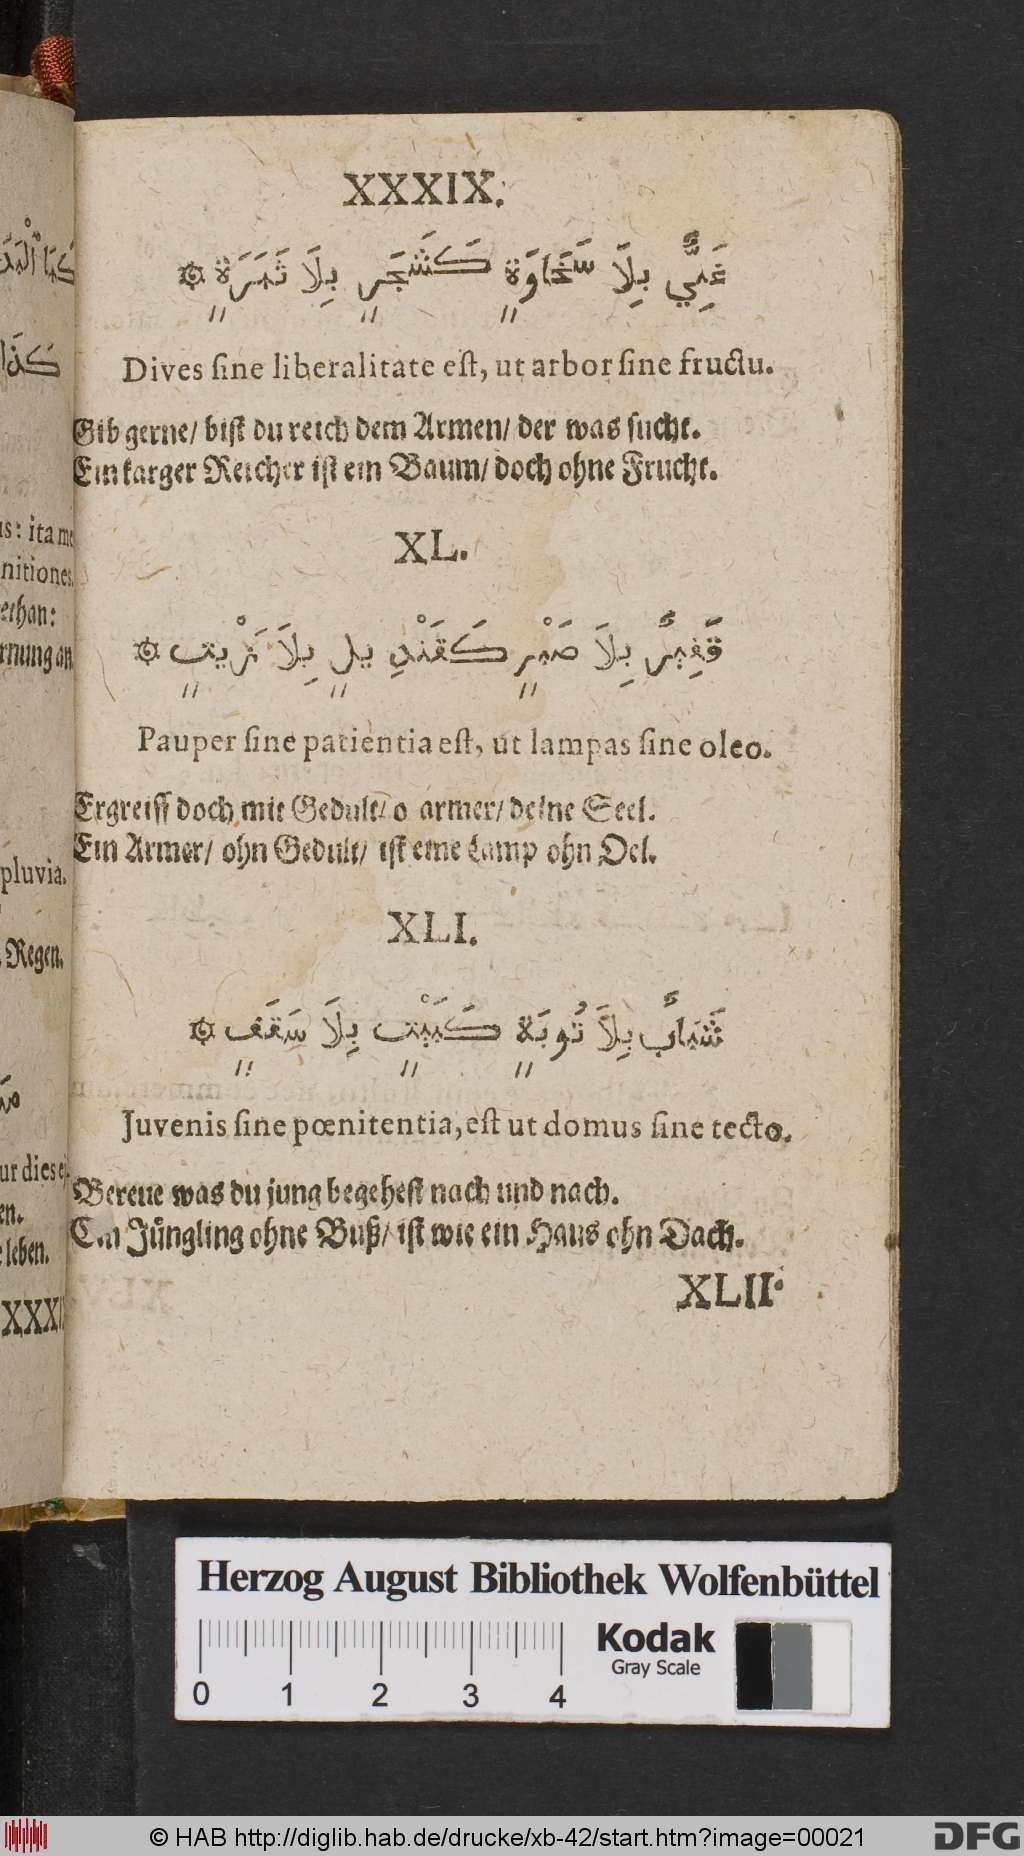 XXXIX.
غَنِيٌّ بِلَا سَخَاوَةٍ كَشَجَرٍ بِلَا ثَمَرَةٍ ۞
Dives ſine liberalitate eſt, ut arbor ſine fructu.
Gib gerne/ biſt du reich dem Armen/ der was ſucht.
Ein karger Reicher iſt ein Baum/ doch ohne Frucht.
XL.
فَقِيرٌ بِلَا صَبْرٍ كَقَنْدِيلٍ بِلَا زَيْتٍ ۞
Pauper ſine patientia eſt, ut lampas ſine oleo.
Ergreiff doch mit Gedult/ o armer/ deine Seel.
Ein Armer/ ohn Gedult/ iſt eine Lamp ohn Oel.
XLI.
شَابٌّ بِلَا تُوبَةٍ كَبَيْتٍ بِلَا سَقَفٍ ۞
Juvenis ſine pœnitentia, eſt ut domus ſine tecto.
Bereue was du jung begeheſt nach und nach.
Ein Jüngling ohne Buß/ iſt wie ein Haus ohn Dach.
XLII.
us: ita me
nitiones.
pluvia.
Regen.
ur dies
en.
leben.
Herzog August Bibliothek Wolfenbüttel
Kodak
Gray Scale
0 1 2 3 4
© HAB http://diglib.hab.de/drucke/xb-42/start.htm?image=00021
DFG